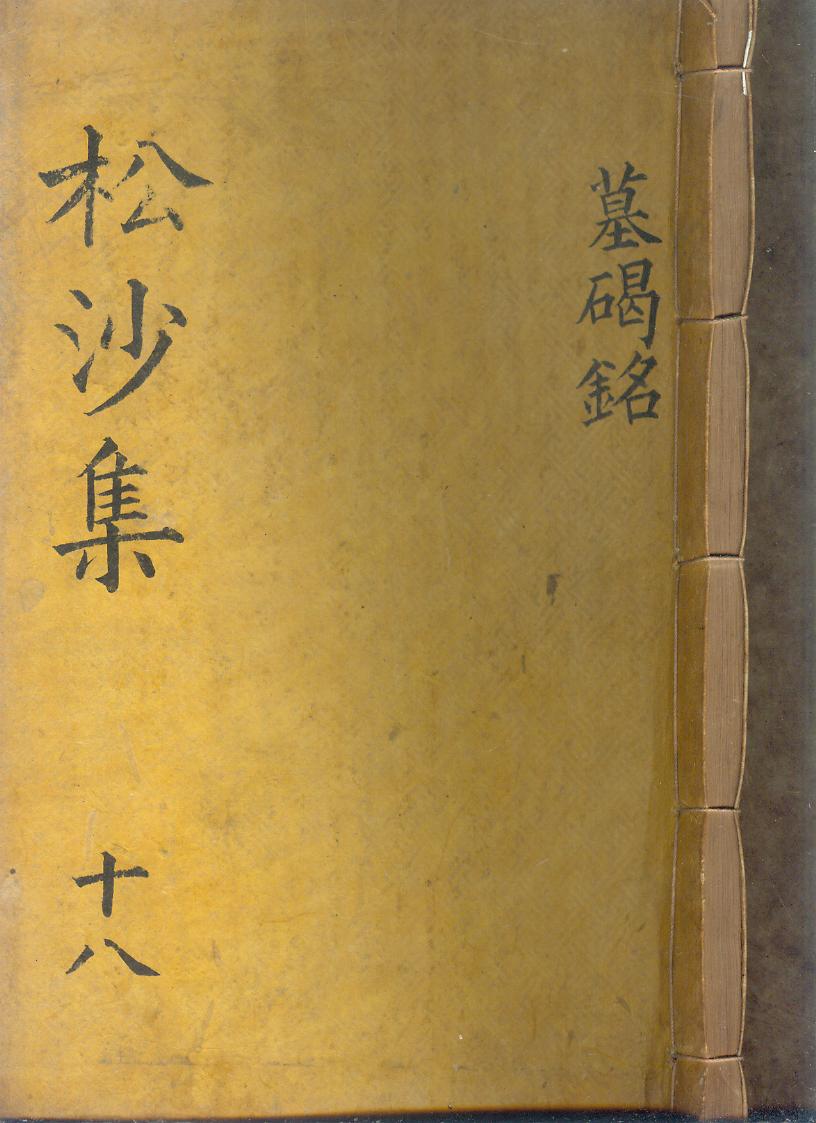 墓碣銘
松沙集
十八